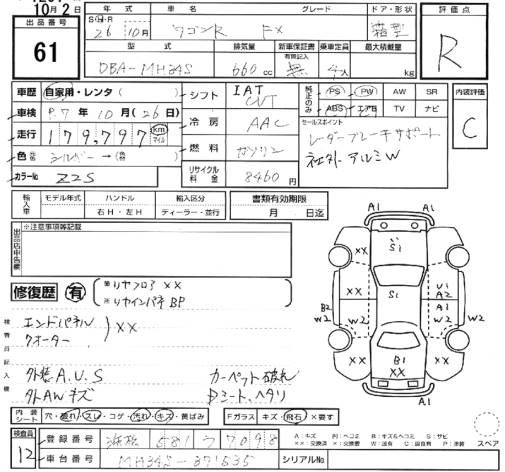 10月2日
出品番号
61
年式
車名
グレード
ドア・形状
評価点
S・H・R
26 10月
ワゴンR
FX
箱型
R
型式
排気量
新車保証書
有限記入
乗車定員
最大積載量
DBA-MH34S
660cc
無
4人
kg
車歴
自家用・レンタ( )
シフト
IAT
CVT
純正のみ
PS
PW
AW
SR
ABS
エアB
TV
ナビ
内装評価
C
車検
R7年10月(26日)
冷房
AAC
セールスポイント
レーダーブレーキサポート
社外アルミW
走行
179,797
km
マイル
燃料
ガソリン
色
シルバー→( )
カラーNo
Z2S
リサイクル料金
8460円
輸入車
モデル年式
ハンドル
輸入区分
右H・左H
ディーラー・並行
書類有効期限
月 日迄
出品店申告欄
※注意事項等記載
修復歴
有
リヤフロア XX
リヤインパネ BP
検査員記入欄
エンドパネル
クオーター
XX
外装A.U.S
外AWキズ
カーペット破れ
Dシート、ヘタリ
A1
A1
XX
S1
XX
S1
U1
A2
XX
A1
B2
W2
W2
W2
W2
B1
XX
A1
A1
内装シート
穴・破れ・スレ・コゲ・汚れ・キズ・黄ばみ
Fガラス
キズ・飛石・X要す
検査員
12
登録番号
浜松 581 ワ 7098
車台番号
MH34S-371535
シリアルNo.
A:キズ
P:ペコミ
B:キズ&ヘコミ
S:サビ
スペア